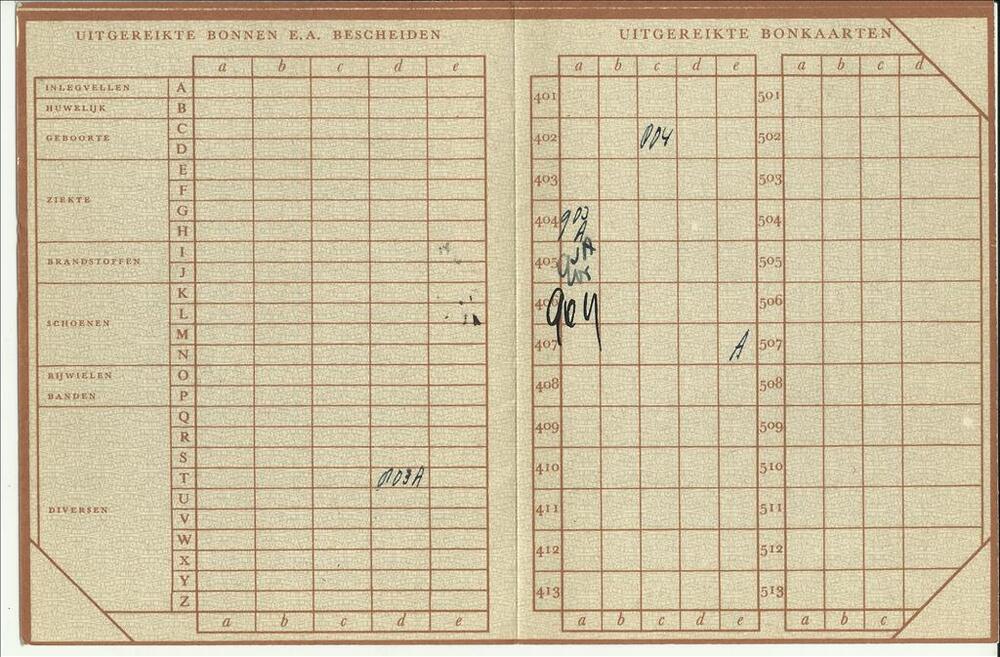 UITGEREIKTE BONNEN E.A. BESCHEIDEN
a b c d e
INLEGVELLEN A
HUWELIJK B
GEBOORTE C
D
E
F
ZIEKTE
G
H
I
BRANDSTOFFEN
J
K
L
SCHOENEN
M
N
RIJWIELEN O
BANDEN P
Q
R
S
T 003A
U
DIVERSEN
V
W
X
Y
Z
a b c d e
UITGEREIKTE BONKAARTEN
a b c d e a b c d
401 501
402 004 502
403 503
404 903 A 504
405 505
406 904 506
407 A 507
408 508
409 509
410 510
411 511
412 512
413 513
a b c d e a b c